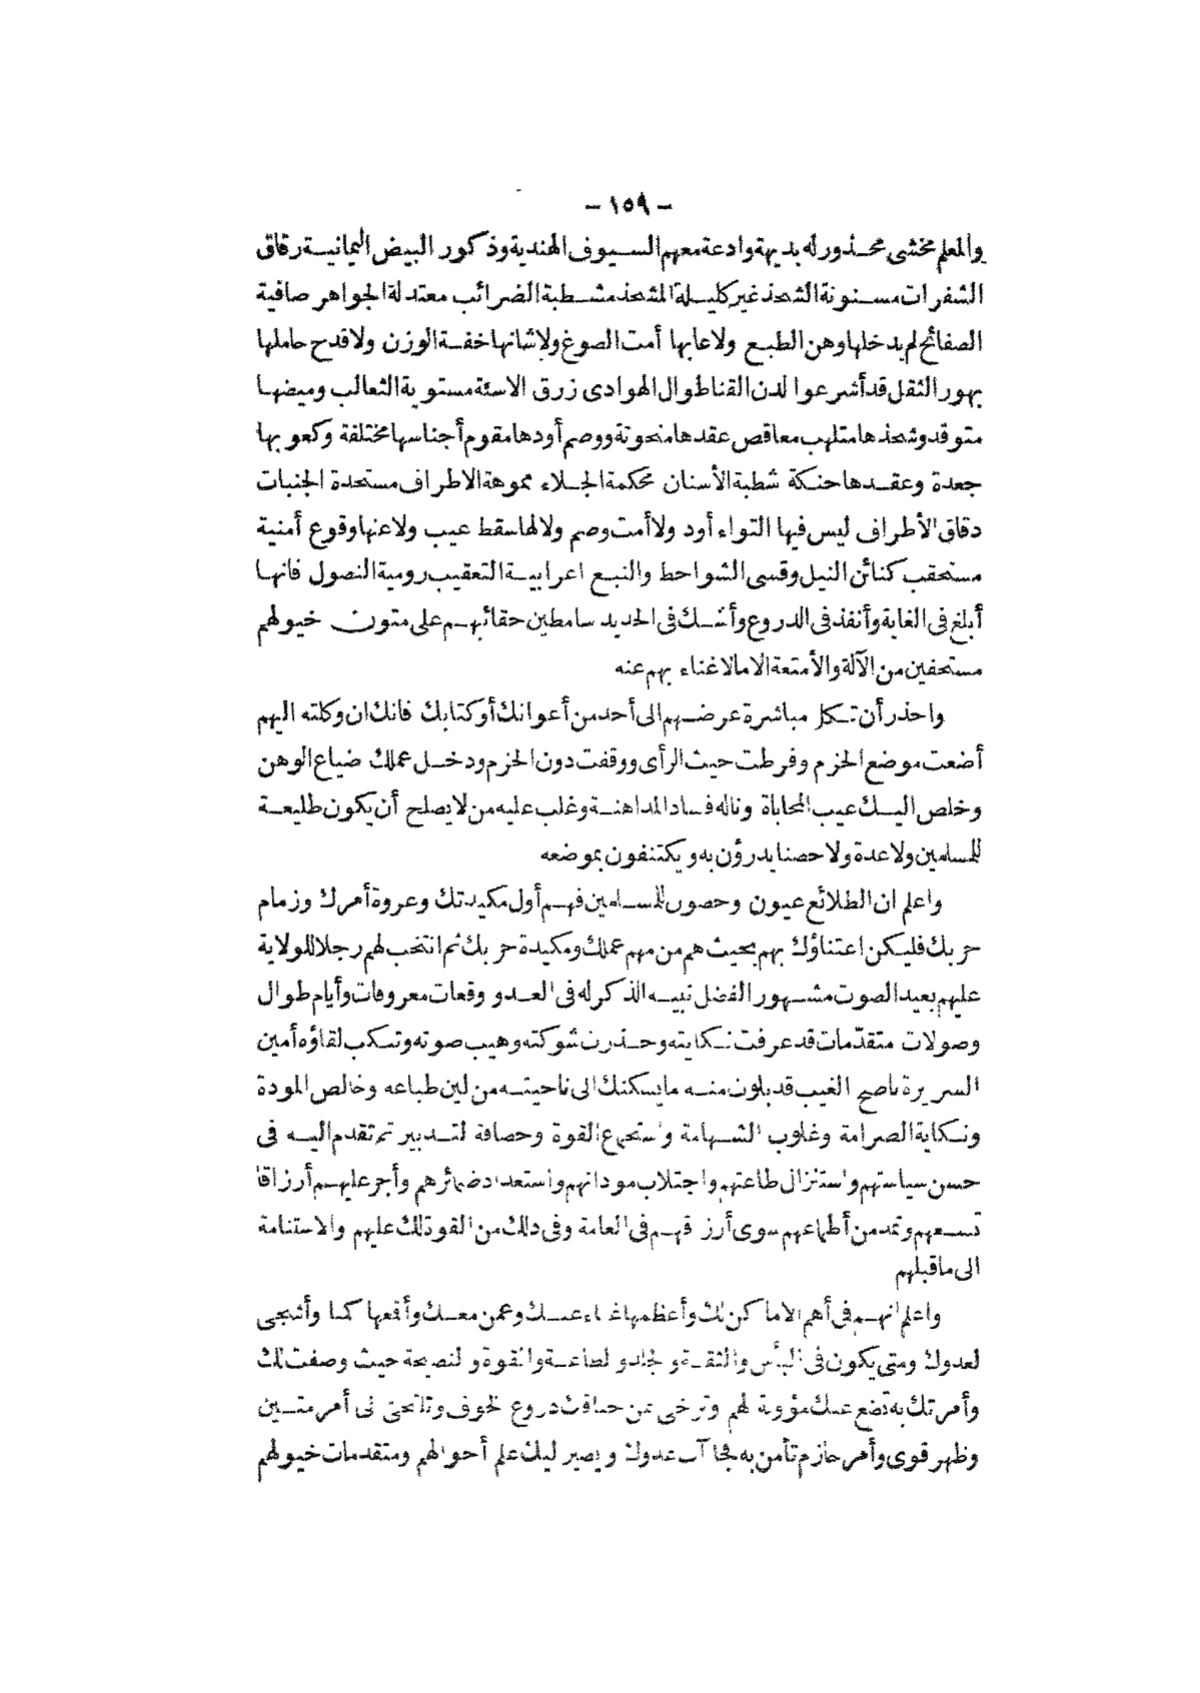 - ١٥٩ -
والمعلم مخشى محذور له بديهة وادعة معهم السيوف الهندية وذكور البيض اليمانية رقاق
الشفرات مسنونة الشحذ غير كليلة المشحذ مشطبة الضرائب معتدلة الجواهر صافية
الصفائح لم يدخلها وهن الطبع ولا عابها أمت الصوغ ولا شانها خفة الوزن ولا فدح حاملها
بهور الثقل قد أشرعوا لدن القنا طوال الهوادى زرق الاسنة مستوية الثعالب وميضها
متوقد وشحذها متلهب معاقص عقدها منحوتة ووصم أودها مقوم أجناسها مختلفة وكعوبها
جعدة وعقدها حنكة شطبة الأسنان محكمة الجلاء مموهة الاطراف مستحدة الجنبات
دقاق الأطراف ليس فيها التواء أود ولا أمت وصم ولا لها سقط عيب ولا عنها وقوع أمنية
مستحقب كنائن النبل وقسى الشواحط والنبع اعرابية التعقيب رومية النصول فانها
أبلغ فى الغاية وأنفذ فى الدروع وأشك فى الحديد سامطين حقائبهم على متون خيولهم
مستخفين من الآلة والأمتعة الا ما لا غناء بهم عنه
واحذر أن تكل مباشرة عرضهم الى أحد من أعوانك أو كتابك فانك ان وكلته اليهم
أضعت موضع الحزم وفرطت حيث الرأى ووقفت دون الحزم ودخل عملك ضياع الوهن
وخلص اليك عيب المحاباة وناله فساد المداهنة وغلب عليه من لا يصلح أن يكون طليعة
للمسلمين ولا عدة ولا حصنا يدرؤن به ويكتنفون بموضعه
واعلم ان الطلائع عيون وحصون للمسلمين فهم أول مكيدتك وعروة أمرك وزمام
حربك فليكن اعتناؤك بهم بحيث هم من مهم عملك ومكيدة حربك ثم انتخب لهم رجلا للولاية
عليهم بعيد الصوت مشهور الفضل نبيه الذكر له فى العدو وقعات معروفات وأيام طوال
وصولات متقدّمات قد عرفت نكايته وحذرت شوكته وهيب صوته وتنكب لقاؤه أمين
السريرة ناصح الغيب قد بلوت منه ما يسكنك الى ناحيته من لين طباعه وخالص المودة
ونكاية الصرامة وغلوب الشهامة واستجماع القوة وحصافة التدبير ثم تقدم اليه فى
حسن سياستهم واستنزال طاعتهم واجتلاب موداتهم واستعداد ضمائرهم وأجر عليهم أرزاقا
تسعهم وتمد من أطماعهم سوى أرزاقهم فى العامة وفى ذلك من القوة لك عليهم والاستنامة
الى ما قبلهم
واعلم انهم فى أهم الاماكن لك وأعظمها غناء عنك وعمن معك وأقمعها كما وأشجى
لعدوك ومتى يكون فى البأس والثقة والجلد والطاعة والقوة والنصيحة حيث وصفت لك
وأمرتك به تضع عنك مؤونة لهم وترخى عن دروع الخوف وتلتجئ الى أمر متين
وظهر قوى وأمر حازم تأمن به فجاآت عدوك ويصير اليك علم أحوالهم ومتقدمات خيولهم